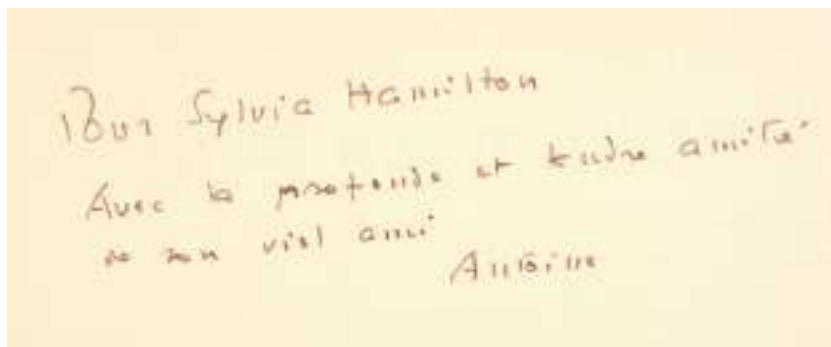 Pour Sylvia Hamilton
Avec la profonde et tendre amitié
de son vieil ami
Antoine